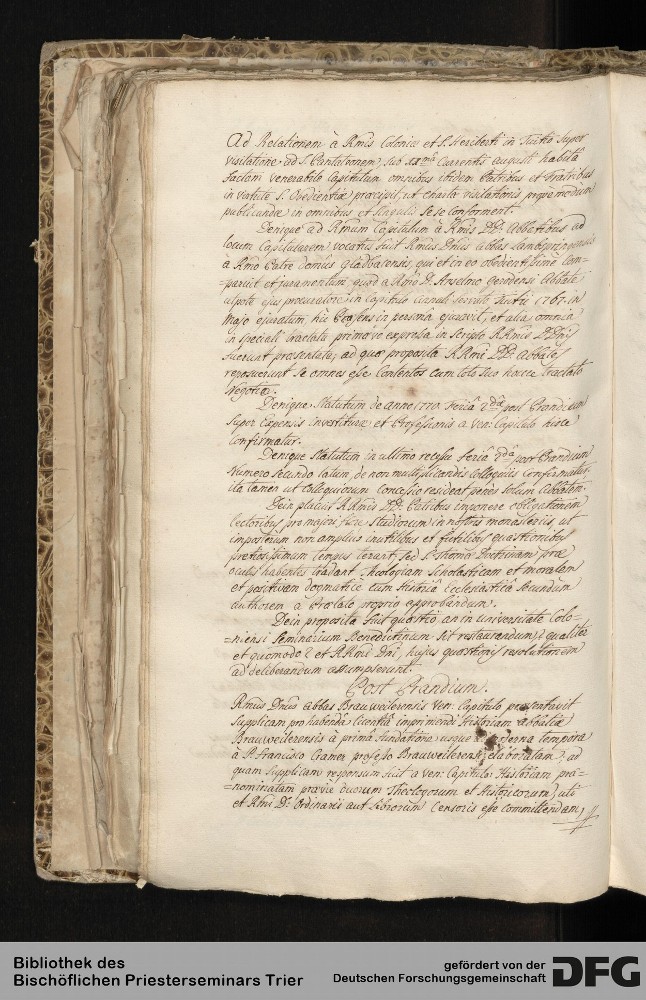 Ad Relationem à Rmis Coloniæ et S. Heriberti in Tuitio super
visitatione ad S. Pantaleonem, suo currentis augusti habitâ
factam venerabile Capitulum omnibus ibidem Patribus et Fratribus
in virtute S. Obedientiæ præcipit, ut chartæ visitationis propemodum
publicandæ in omnibus et singulis sese conforment.
Denique ad Rmum Capitulum à Rmis DD. Abbatibus ad
locum Capitularem vocatus fuit Rmus Dnus Abbas
à Rmo Patre domûs Gladbacensis, qui et in eo obedientissimè com-
=paruit et juramentum quod a Rmo D. Anselmo Abbate
utpote ejus procuratore, in Capitulo Tuitii 1767. in
Majo ejuratum, hic Coǫsens in persona ejuravit, et alia omnia
in speciali tractatu primævo expressa in scripto RRmis DDnis
fuerunt præsentata, ad quæ proposita RRmi DD. Abbates
reposuerunt se omnes esse Contentos cum toto suo hocce tractato
Negotio.
Denique Statutum de anno 1770 Feriâ 2dâ post Prandium
super Expensis investituræ et Professionis a Ven: Capitulo hisce
Confirmatur.
Denique Statutum in ultimo recessu Feriâ 2dâ post Prandium
Numero secundo latum, de non multiplicandis Colloquiis Confirmatur
ita tamen ut Colloquiorum Concessio resideat penes solum Abbatem.
Dein placuit RRmis DD. Patribus imponere obligationem
lectoribus pro majori studiorum in nostris monasteriis, ut
imposterum non amplius inutilibus et futilibus quæstionibus
pretiosissimum tempus terant, sed S. Thomæ Doctrinam præ
oculis habentes tradant Theologiam Scholasticam et moralem
et positivam dogmaticè cum Historiâ Ecclesiasticâ secundum
authorem a Prælato proprio approbandum.
Dein proposita fuit quæstio an in universitate Colo-
=niensi Seminarium Benedictinum sit restaurandum? qualiter
et quomodo? et RRmi Dni hujus quæstionis resolutionem
ad deliberandum assumpserunt.
Post Prandium.
Rmus Dnus abbas Brauweilerensis Ven: Capitulo præsentavit
supplicam pro habendâ licentiâ imprimendi Historiam abbatiæ
Brauweilerensis à primâ fundatione usque ad tempora
à P. Francisco Cramer professo Brauweilerensi elaboratam, ad
quam supplicam responsum fuit a Ven: Capitulo: Historiam præ-
=nominatam prævie duorum Theologorum et Historicorum, uti
et Rmi D. Ordinarii aut librorum Censoris esse committendam.
Bibliothek des
Bischöflichen Priesterseminars Trier
gefördert von der
Deutschen Forschungsgemeinschaft
DFG